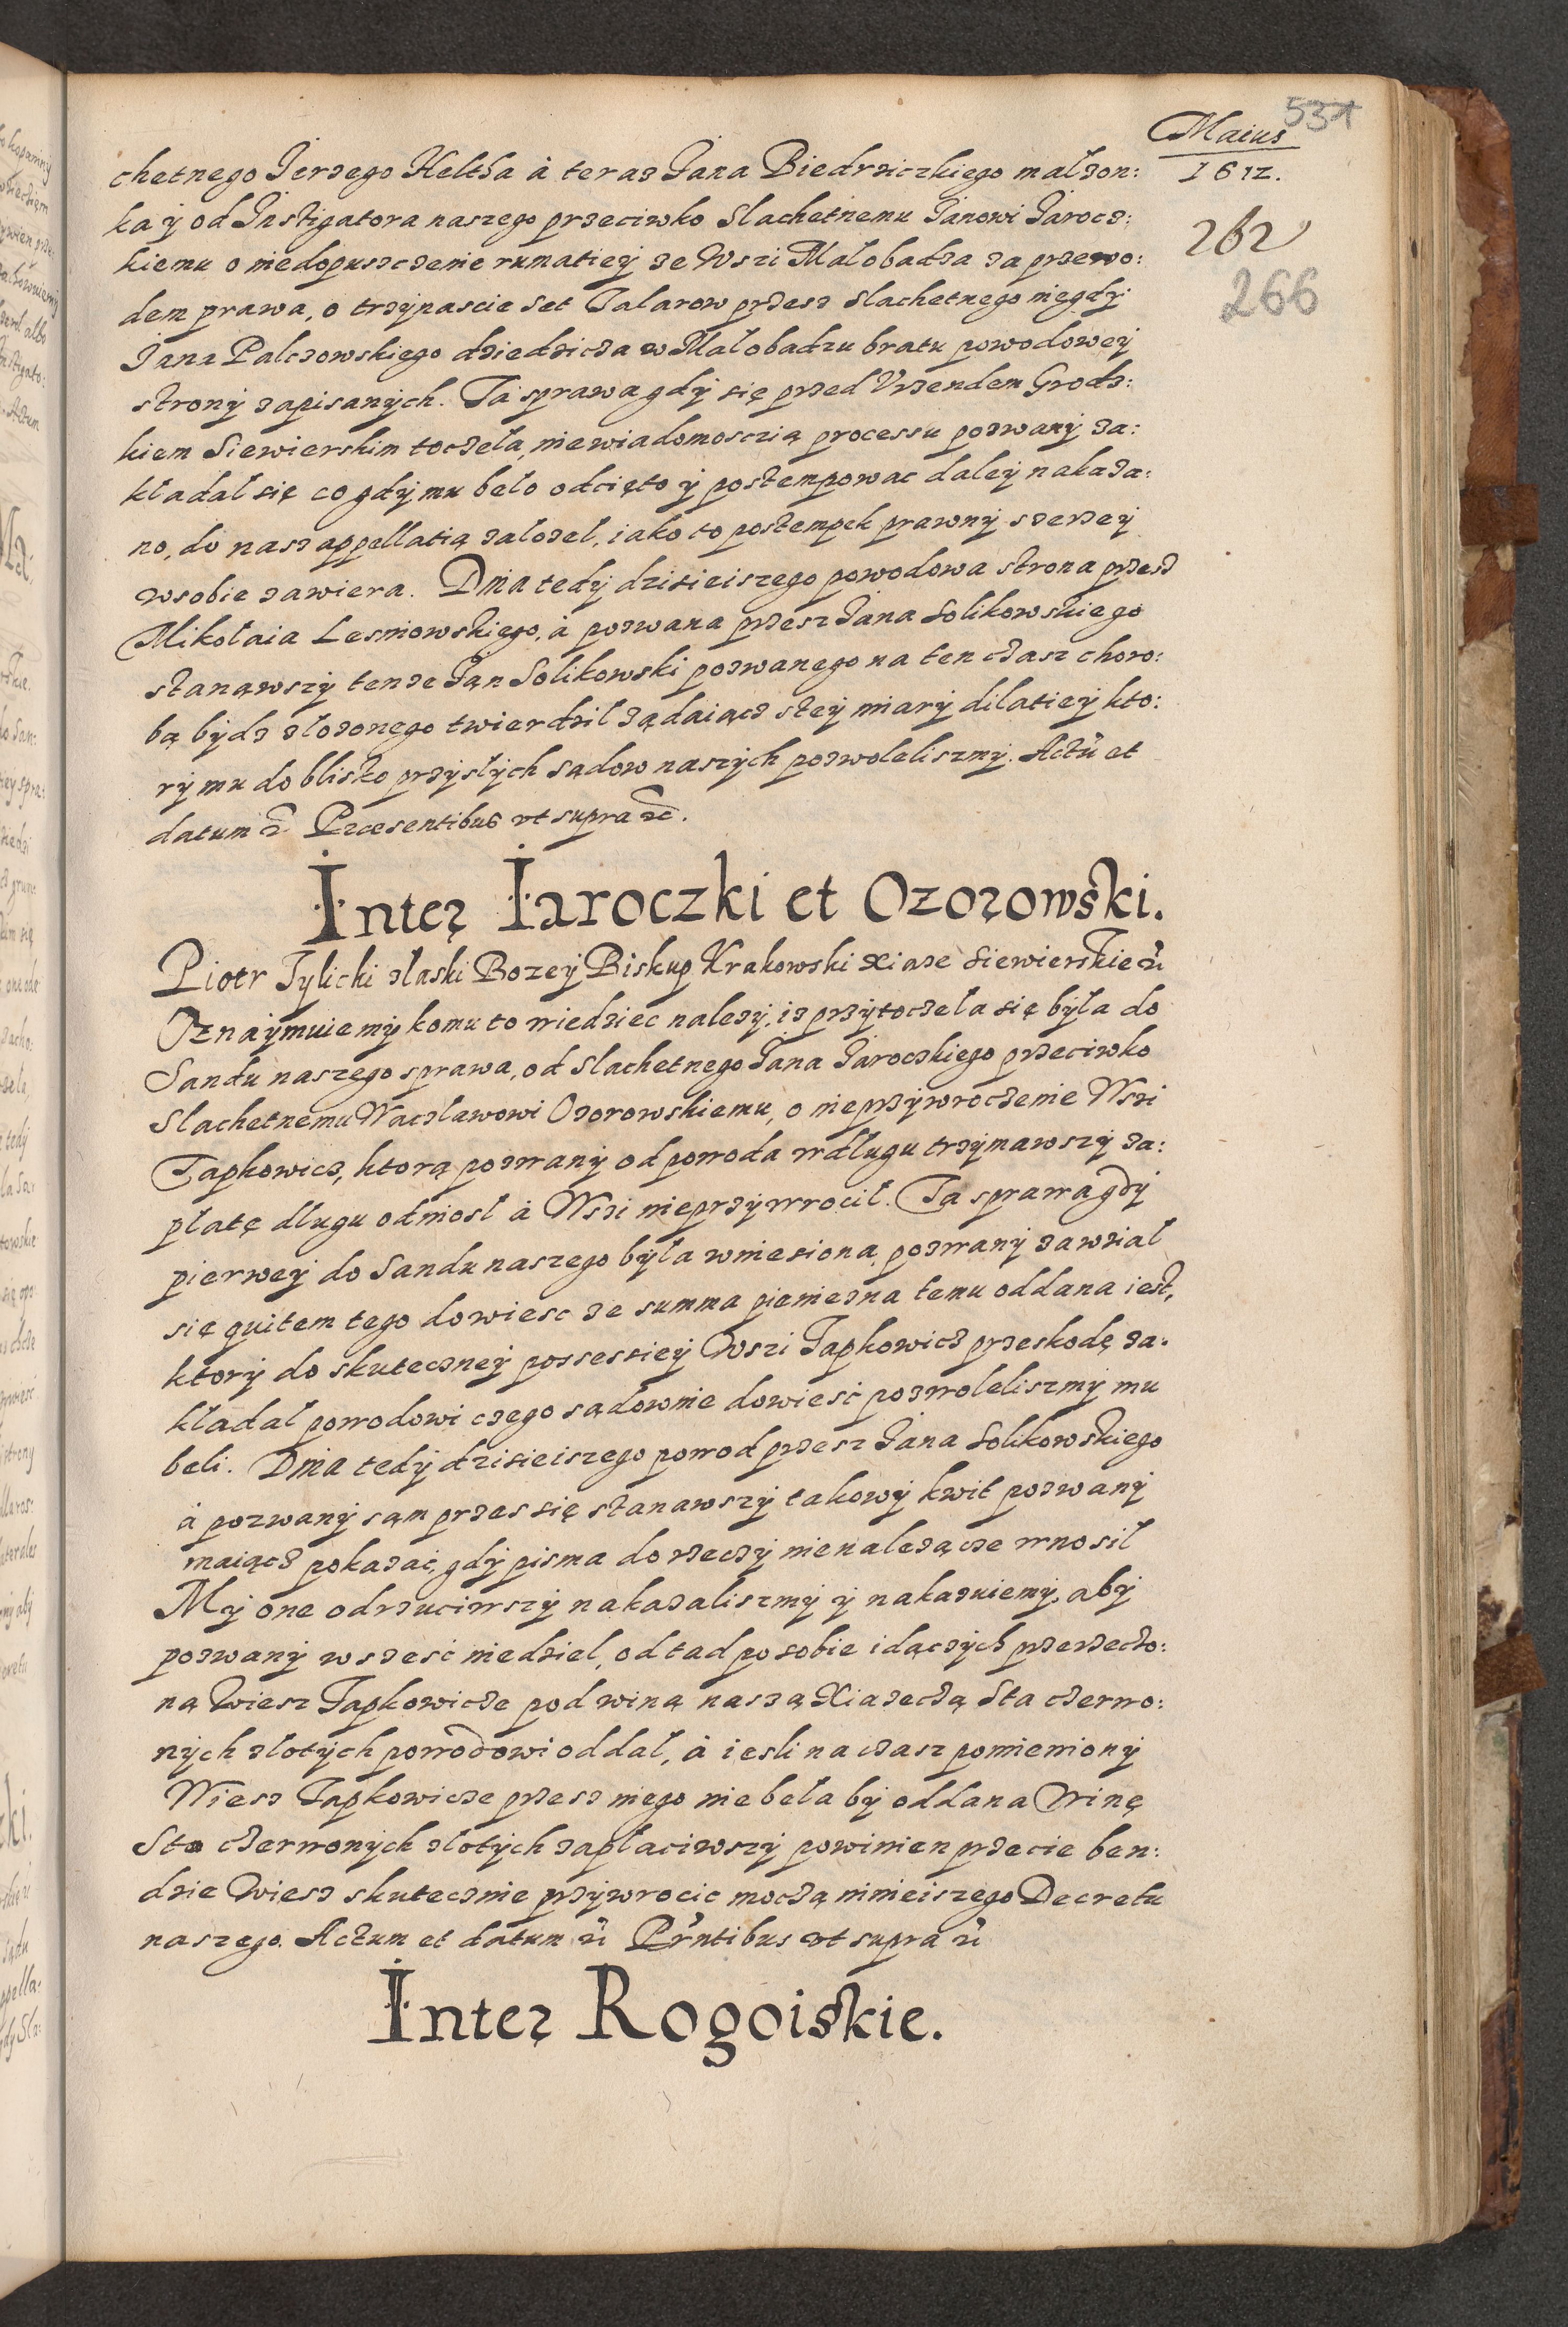 531
Maius
1612.
262
266
chetnego Jerzego Heltza à teraz Jana Biedrziczkiego małzon:
ka ÿ od Instigatora naszego przeciwko Slachetnemu Janowi Jarocz:
kiemu o niedopuszczenie rumatieÿ ze Wszi Małobadza za przewo:
dem prawa, o trzÿnascie set Talarow przez slachetnego niegdÿ
Jana Palczowskiego dziedzicza w Małobadzu bratu powodoweÿ
stronÿ zapisanÿch. Ta sprawa gdÿ się przed Vrzendem Grodz:
kiem Siewierskim toczeła, niewiadomoscią processu pozwanÿ za:
kładał się co gdÿ mu beło odcięto ÿ postempowac daleÿ nakaza:
no, do nasz appellatią założeł, iako to postempek prawnÿ szerzeÿ
wsobie zawiera. Dnia tedÿ dzisieiszego powodowa strona przez
Mikołaia Lesniowskiego, à pozwana przesz Jana Solikowskiego
stanąwszÿ tenze Jąn Solikowski pozwanego na ten czasz choro:
bą bÿdz złozonego twierdził ządaiącz steÿ miarÿ dilatieÿ kto:
rÿ mu do blisko przÿszłÿch sądow naszÿch pozwoleliszmÿ. Actũ et
datum &c. Præsentibus vt supra &c.
Inter Jaroczki et Ozorowski.
Piotr Tylicki złaski Bozeÿ Biskup Krakowski Xiaze Siewierskie &c.
Oznaÿmuiemÿ komu to wiedziec nalezÿ, iz przÿtoczeła się była do
Sandu naszego sprawa, od Slachetnego Jana Jaroczkiego przeciwko
Slachetnemu Waczławowi Ozorowskiemu, o nieprzÿwroczenie Wszi
Tapkowicz, ktorą pozwanÿ od powoda wdługu trzÿmawszÿ za:
płatę długu odniosł à Wszi nieprzÿwrocił. Ta sprawa gdÿ
pierweÿ do Sandu naszego była wniesiona, pozwanÿ zawział
się quitem tego dowiesc ze summa pieniezna temu oddana iest,
ktorÿ do skuteczneÿ possessieÿ Wszi Tapkowicz przeskodę za:
kładał powodowi czego sądownie dowieść pozwoleliszmÿ mu
beli. Dnia tedÿ dzisieiszego powod przesz Jana Solikowskiego
à pozwanÿ sąm przes się stanawszÿ takowÿ kwit pozwanÿ
maiącz pokazać, gdÿ pisma do rzeczÿ nienalezącze wnosił
Mÿ one odrzuciwszÿ nakazaliszmÿ ÿ nakazuiemÿ, abÿ
pozwanÿ wszesć niedziel, od tad po sobie idączÿch przerzeczo:
ną Wiesz Tapkowicze pod winą naszą Xiazeczą sta czerwo:
nÿch złotÿch powodowi oddał, à iesli na czasz pomienionÿ
Wiesz Tapkowicze przez niego nie beła bÿ oddana Winę
Sto czerwonÿch złotÿch zapłaciwszÿ powinien przecie ben:
dzie Wiesz skutecznie przÿwrocic moczą ninieiszego Decretu
naszego. Actum et datum &c. Prñtibus vt supra &c.
Inter Rogoiskie.